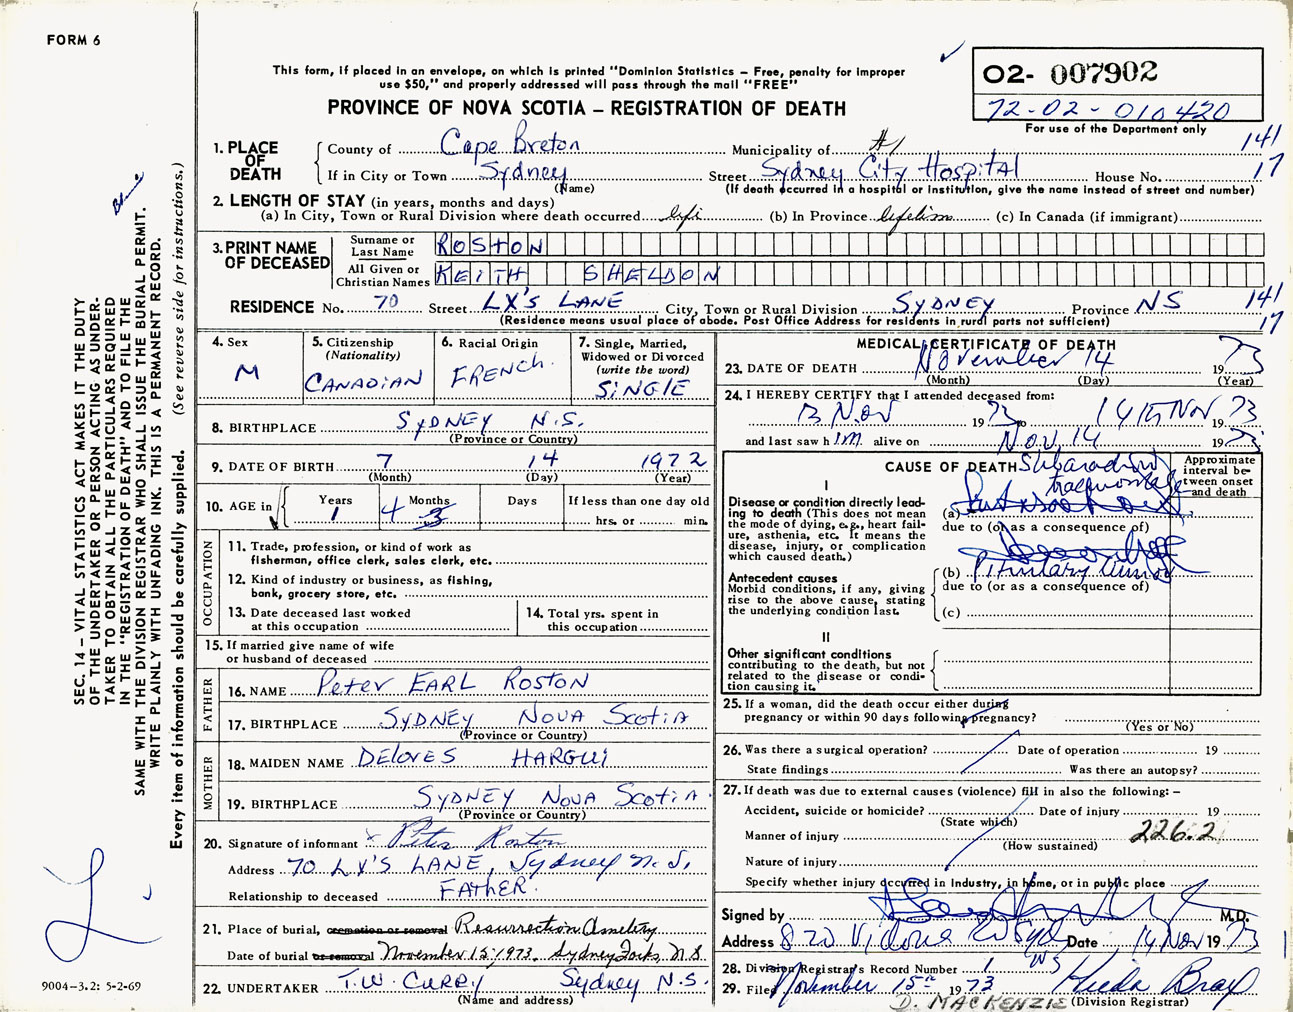 FORM 6
This form, if placed in an envelope, on which is printed "Dominion Statistics – Free, penalty for improper
use $50," and properly addressed will pass through the mail "FREE"
PROVINCE OF NOVA SCOTIA – REGISTRATION OF DEATH
02- 007902
72-02-010420
For use of the Department only
1. PLACE OF DEATH
County of Cape Breton Municipality of #1 141
If in City or Town Sydney Street Sydney City Hospital House No. 17
(Name) (If death occurred in a hospital or institution, give the name instead of street and number)
2. LENGTH OF STAY (in years, months and days)
(a) In City, Town or Rural Division where death occurred life (b) In Province lifetime (c) In Canada (if immigrant)
3. PRINT NAME OF DECEASED
Surname or Last Name ROSTON
All Given or Christian Names KEITH SHELDON
RESIDENCE No. 70 Street LX'S LANE City, Town or Rural Division SYDNEY Province NS 141
(Residence means usual place of abode. Post Office Address for residents in rural parts not sufficient) 17
4. Sex
M
5. Citizenship
(Nationality)
CANADIAN
6. Racial Origin
FRENCH
7. Single, Married,
Widowed or Divorced
(write the word)
SINGLE
8. BIRTHPLACE SYDNEY N.S.
(Province or Country)
9. DATE OF BIRTH 7 14 1972
(Month) (Day) (Year)
10. AGE in Years 1 Months 4 3 Days If less than one day old
hrs. or min.
OCCUPATION
11. Trade, profession, or kind of work as
fisherman, office clerk, sales clerk, etc.
12. Kind of industry or business, as fishing,
bank, grocery store, etc.
13. Date deceased last worked
at this occupation
14. Total yrs. spent in
this occupation
15. If married give name of wife
or husband of deceased
FATHER
16. NAME Peter EARL ROSTON
17. BIRTHPLACE SYDNEY NOVA SCOTIA
(Province or Country)
MOTHER
18. MAIDEN NAME DELORES HARGUI
19. BIRTHPLACE SYDNEY NOVA SCOTIA
(Province or Country)
20. Signature of informant x Peter Roston
Address 70 LX'S LANE, Sydney N.S.
Relationship to deceased FATHER
21. Place of burial, cremation or removal Resurrection Cemetery
Date of burial or removal November 15, 1973. Sydney Forks N.S
22. UNDERTAKER T.W. CURRY Sydney N.S.
(Name and address)
MEDICAL CERTIFICATE OF DEATH
23. DATE OF DEATH November 14 1973
(Month) (Day) (Year)
24. I HEREBY CERTIFY that I attended deceased from:
13 NOV 1973 to 14 th Nov. 73
and last saw him alive on Nov. 14 1973
CAUSE OF DEATH
Approximate
interval be-
tween onset
and death
I
Disease or condition directly lead-
ing to death (This does not mean
the mode of dying, e.g., heart fail-
ure, asthenia, etc. It means the
disease, injury, or complication
which caused death.)
(a) Subarachnoid
due to (or as a consequence of)
Antecedent causes
Morbid conditions, if any, giving
rise to the above cause, stating
the underlying condition last.
(b) Pituitary tumor
due to (or as a consequence of)
(c)
II
Other significant conditions
contributing to the death, but not
related to the disease or condi-
tion causing it.
25. If a woman, did the death occur either during
pregnancy or within 90 days following pregnancy?
(Yes or No)
26. Was there a surgical operation? Date of operation 19
State findings Was there an autopsy?
27. If death was due to external causes (violence) fill in also the following: –
Accident, suicide or homicide? Date of injury 19
(State which)
Manner of injury 226.2
(How sustained)
Nature of injury
Specify whether injury occurred in Industry, in home, or in public place
Signed by M.D.
Address Date 14 Nov 1973
28. Division Registrar's Record Number 1
29. Filed November 15th 1973
D. MACKENZIE (Division Registrar)
SEC. 14 – VITAL STATISTICS ACT MAKES IT THE DUTY
OF THE UNDERTAKER OR PERSON ACTING AS UNDER-
TAKER TO OBTAIN ALL THE PARTICULARS REQUIRED
IN THE "REGISTRATION OF DEATH" AND TO FILE THE
SAME WITH THE DIVISION REGISTRAR WHO SHALL ISSUE THE BURIAL PERMIT.
WRITE PLAINLY WITH UNFADING INK. THIS IS A PERMANENT RECORD.
Every item of information should be carefully supplied. (See reverse side for instructions.)
9004-3.2: 5-2-69